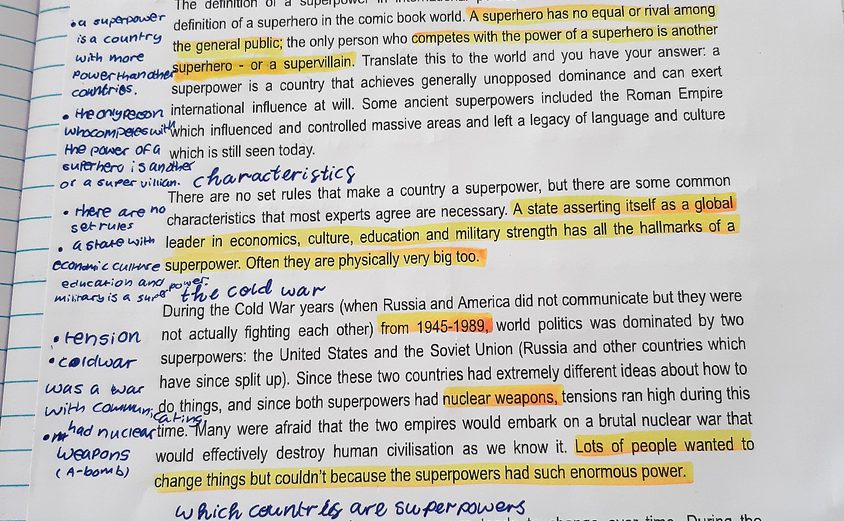 The definition of a superpower in
definition of a superhero in the comic book world. A superhero has no equal or rival among
the general public; the only person who competes with the power of a superhero is another
superhero - or a supervillain. Translate this to the world and you have your answer: a
superpower is a country that achieves generally unopposed dominance and can exert
international influence at will. Some ancient superpowers included the Roman Empire
which influenced and controlled massive areas and left a legacy of language and culture
which is still seen today.
• a superpower
is a country
with more
power than other
countries.
• the only person
who competes with
the power of a
superhero is another
or a super villian.
characteristics
There are no set rules that make a country a superpower, but there are some common
characteristics that most experts agree are necessary. A state asserting itself as a global
leader in economics, culture, education and military strength has all the hallmarks of a
superpower. Often they are physically very big too.
• there are no
set rules
• a state with
economic culture
education and
military is a super power.
the cold war
During the Cold War years (when Russia and America did not communicate but they were
not actually fighting each other) from 1945-1989, world politics was dominated by two
superpowers: the United States and the Soviet Union (Russia and other countries which
have since split up). Since these two countries had extremely different ideas about how to
do things, and since both superpowers had nuclear weapons, tensions ran high during this
time. Many were afraid that the two empires would embark on a brutal nuclear war that
would effectively destroy human civilisation as we know it. Lots of people wanted to
change things but couldn't because the superpowers had such enormous power.
• tension
• coldwar
was a war
with communicating
• had nuclear
weapons
(A-bomb)
which countris are superpowers
over time. During the